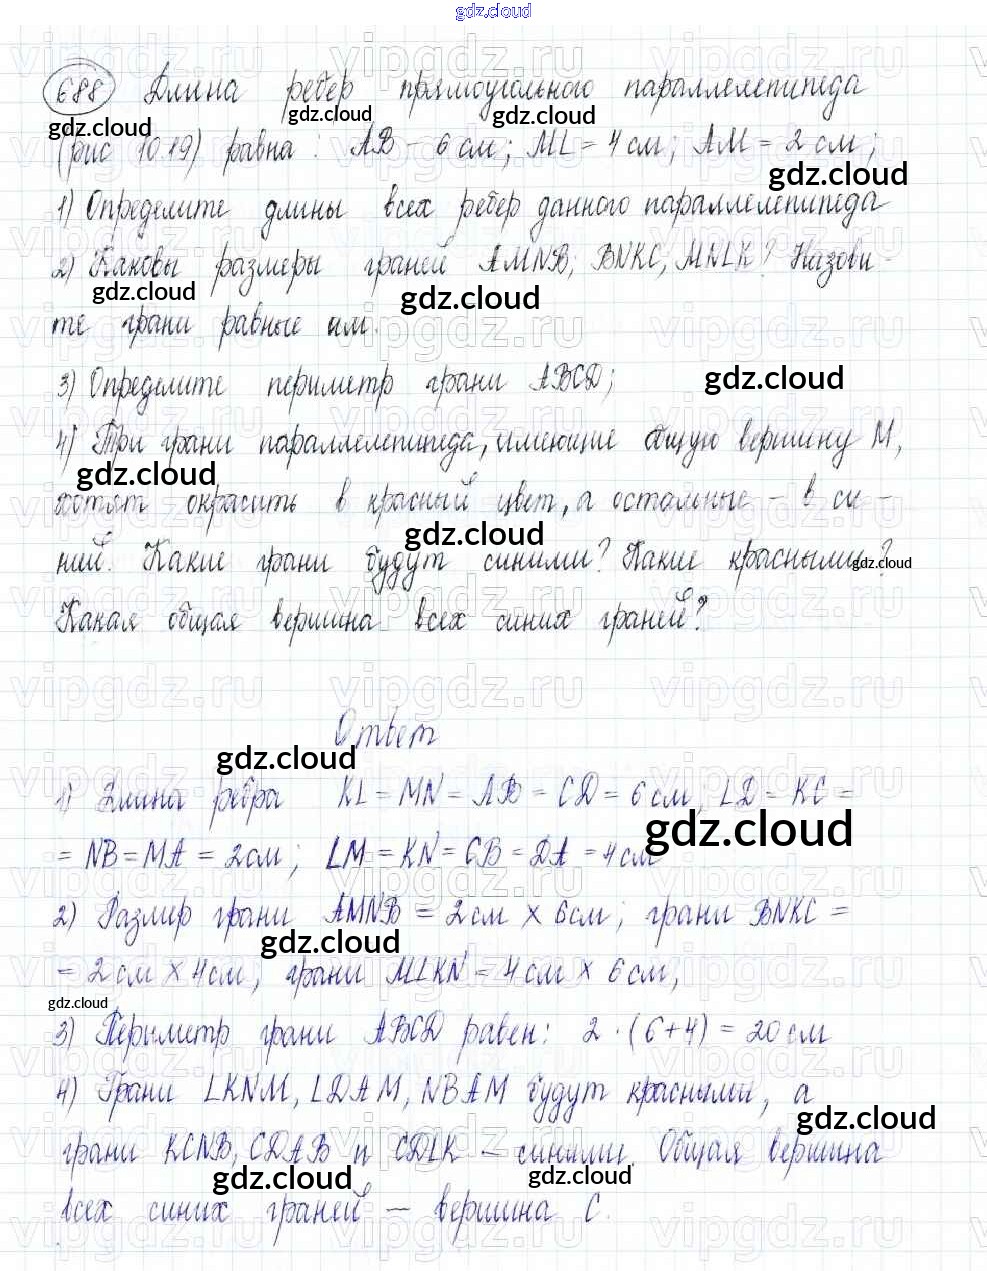 gdz.cloud
688 Длина ребер прямоугольного параллелепипеда
(рис 10.19) равна: AB – 6 см; ML = 4 см; AM = 2 см;
1) Определите длины всех ребер данного параллелепипеда
2) Каковы размеры граней AMNB; BNKC; MNLK? Назови-
те грани равные им.
3) Определите периметр грани ABCD;
4) Три грани параллелепипеда, имеющие общую вершину M,
хотят окрасить в красный цвет, а остальные – в си-
ний. Какие грани будут синими? Какие красными?
Какая общая вершина всех синих граней?
Ответ
1) Длина ребра KL = MN = AB = CD = 6 см; LD = KC =
= NB = MA = 2 см; LM = KN = CB = DA = 4 см
2) Размер грани AMNB = 2 см × 6 см; грани BNKC =
= 2 см × 4 см; грани MLKN = 4 см × 6 см;
3) Периметр грани ABCD равен: 2 · (6+4) = 20 см
4) Грани LKNM, LDAM, NBAM будут красными, а
грани KCNB, CDAB и CDLK – синими. Общая вершина
всех синих граней – вершина C.